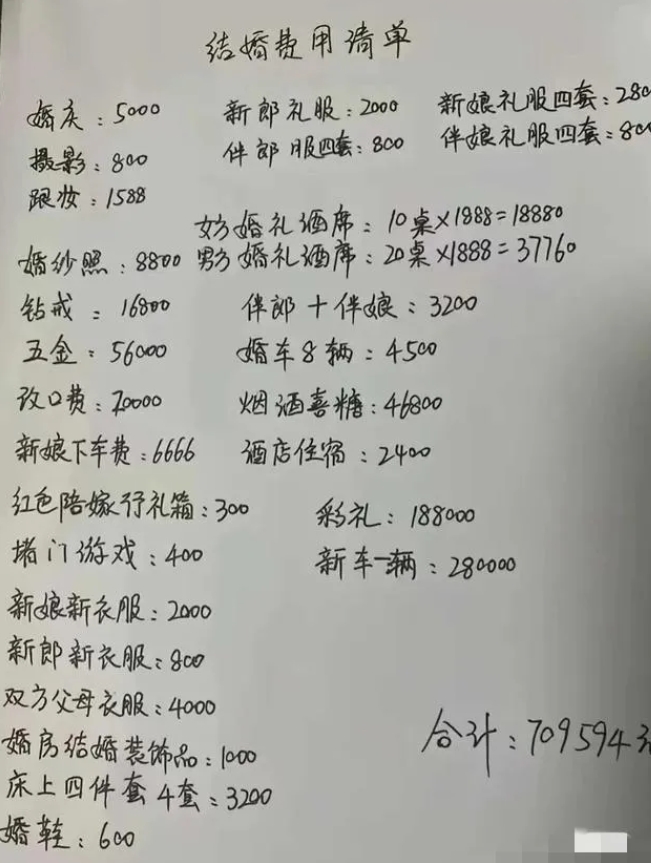 结婚费用清单
婚庆：5000 新郎礼服：2000 新娘礼服四套：280
摄影：800 伴郎服四套：800 伴娘礼服四套：800
跟妆：1588
女方婚礼酒席：10桌×1888=18880
婚纱照：8800 男方婚礼酒席：20桌×1888=37760
钻戒：16800 伴郎+伴娘：3200
五金：56000 婚车8辆：4500
改口费：20000 烟酒喜糖：46800
新娘下车费：6666 酒店住宿：2400
红色陪嫁行礼箱：300 彩礼：188000
堵门游戏：400 新车一辆：280000
新娘新衣服：2000
新郎新衣服：800
双方父母衣服：4000
婚房结婚装饰品：1000
合计：709594元
床上四件套4套：3200
婚鞋：600